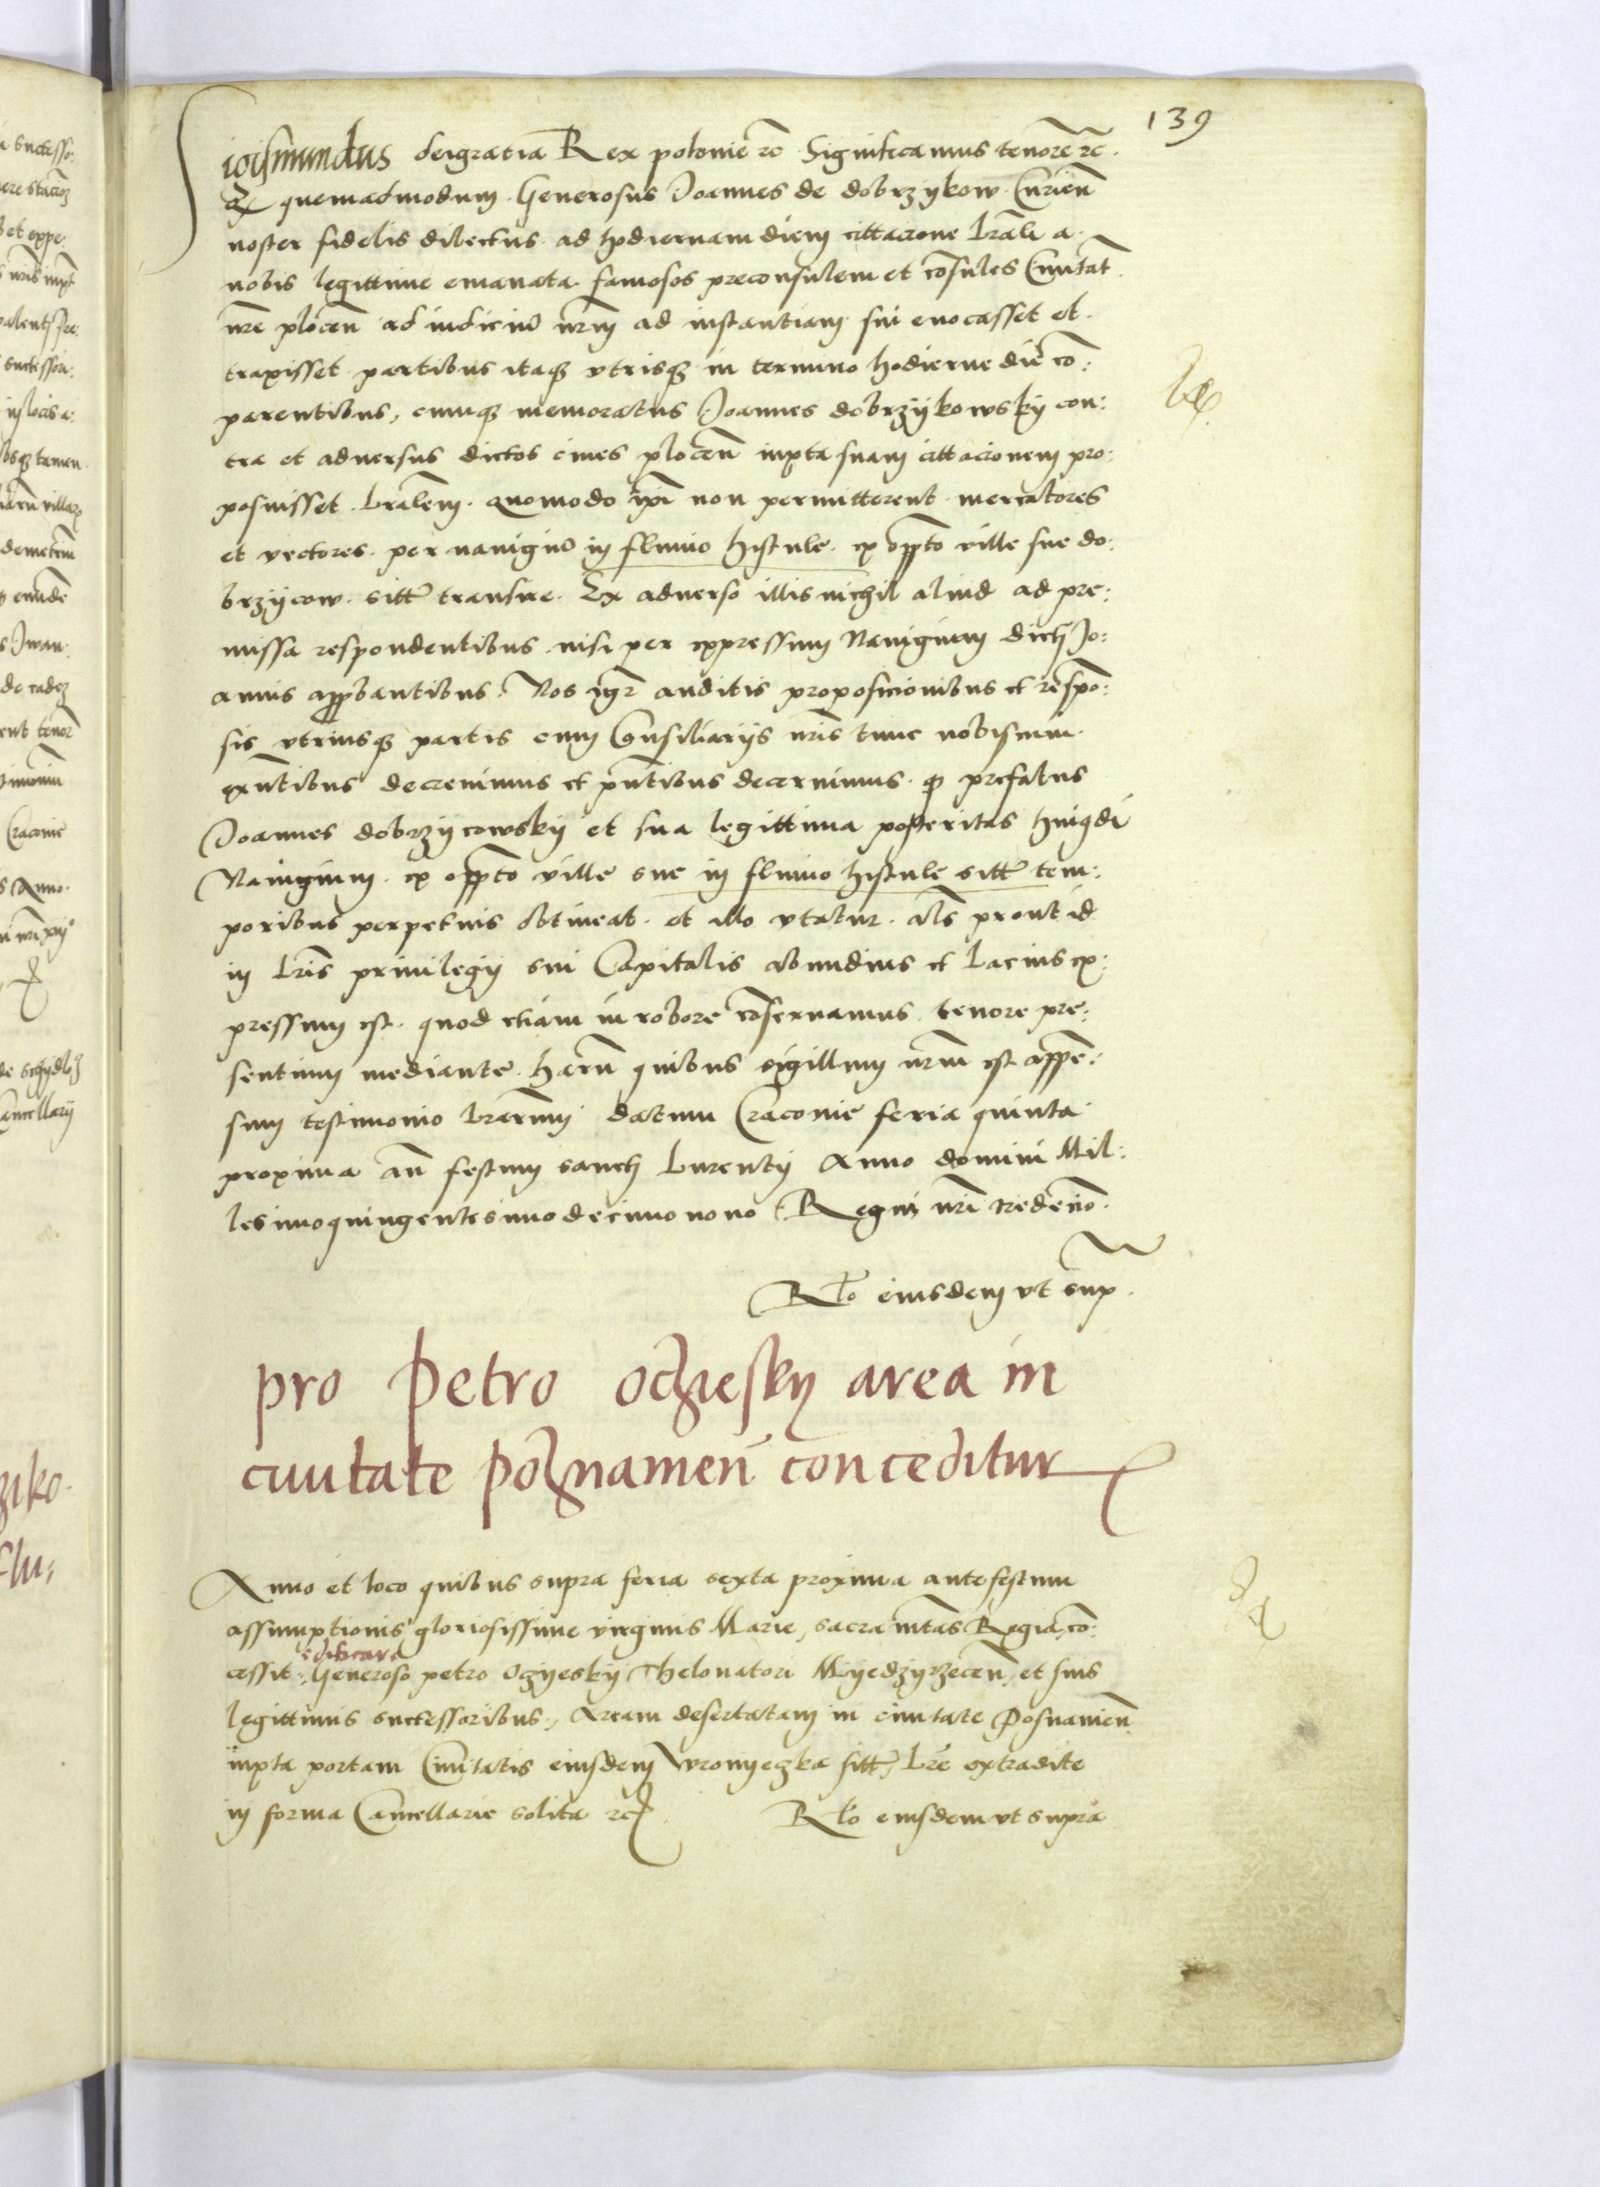 139
Sigismundus deigratia Rex polonie rc Significamus tenore rc.
Q quemadmodum. Generosus Joannes de dobrzykow. Curien̄
noster fidelis dilectus ad hodiernam diem cittacione l̄rali a
nobis legittime emanata famosos preconsulem et cōsules Civitat̄
nr̄e plocen̄ ad iudiciū nr̄m ad instantiam sui evocasset et.
traxisset partibus itaq̨ vtrisq̨ in termino hodierne diē cō:
parentibus, cumq̨ memoratus Joannes dobrzykowsky con:
tra et adversus dictos cives plocen̄ iuxta suam cittacionem pro:
posuisset. l̄ralem. quomodo ip̄i non permitterent mercatores
et vectores. per navigiū in fluvio histule. ex opp̄to ville sue do:
brzycow. sitt̄ transire. Ex adverso illis nichil aliud ad pre:
missa respondentibus. nisi per expressum Navigium dicti Jo:
annis app̄bantibus. Nos igr̄ auditis proposicionibus et respō:
sis vtriusq̨ partis cum Consiliariys nr̄is tunc nobiscum.
exn̄tibus decrevimus et pn̄tibus decernimus. q̨ prefatus
Joannes dobrzycowsky et sua legittima posteritas huiq̨di
Navigium. ex opp̄to ville sue in fluvio histule sitt̄ tem:
poribus perpetuis obtineat. et illo vtatur. al̄s prout id
in l̄ris privilegy sui Capitalis abundius et lacius ex:
pressum est. quod etiam in robore cōservamus tenore pre:
sentium mediante. har̄u quibus sigillum nr̄m est appē:
sum testimonio l̄rarum datum Cracovie feria quinta
proxima an̄ festum sancti laurenty Anno domini Mil:
lesimoquingentesimodecimonono Regni nr̄i tredecīo.
Rl̄o eiusdem vt sup̄.
pro Petro oczieſky area in
civitate Poznanien̄ conceditur
Anno et loco quibus supra feria sexta proxima ante festum
assumptionis gloriosissime virginis Marie, sacra m̄tas Regia, cō:
edificare
cessit, Generoso petro Oczyesky Thelonatori Myedzyrzecen̄, et suis
legittimis successoribus, Aream desertatam in civitate Posnanien̄
iuxta portam Civitatis eiusdem Vronyeczka sitt̄, l̄re extradite
in forma Cancellarie solita rc
Rl̄o eiusdem vt supra